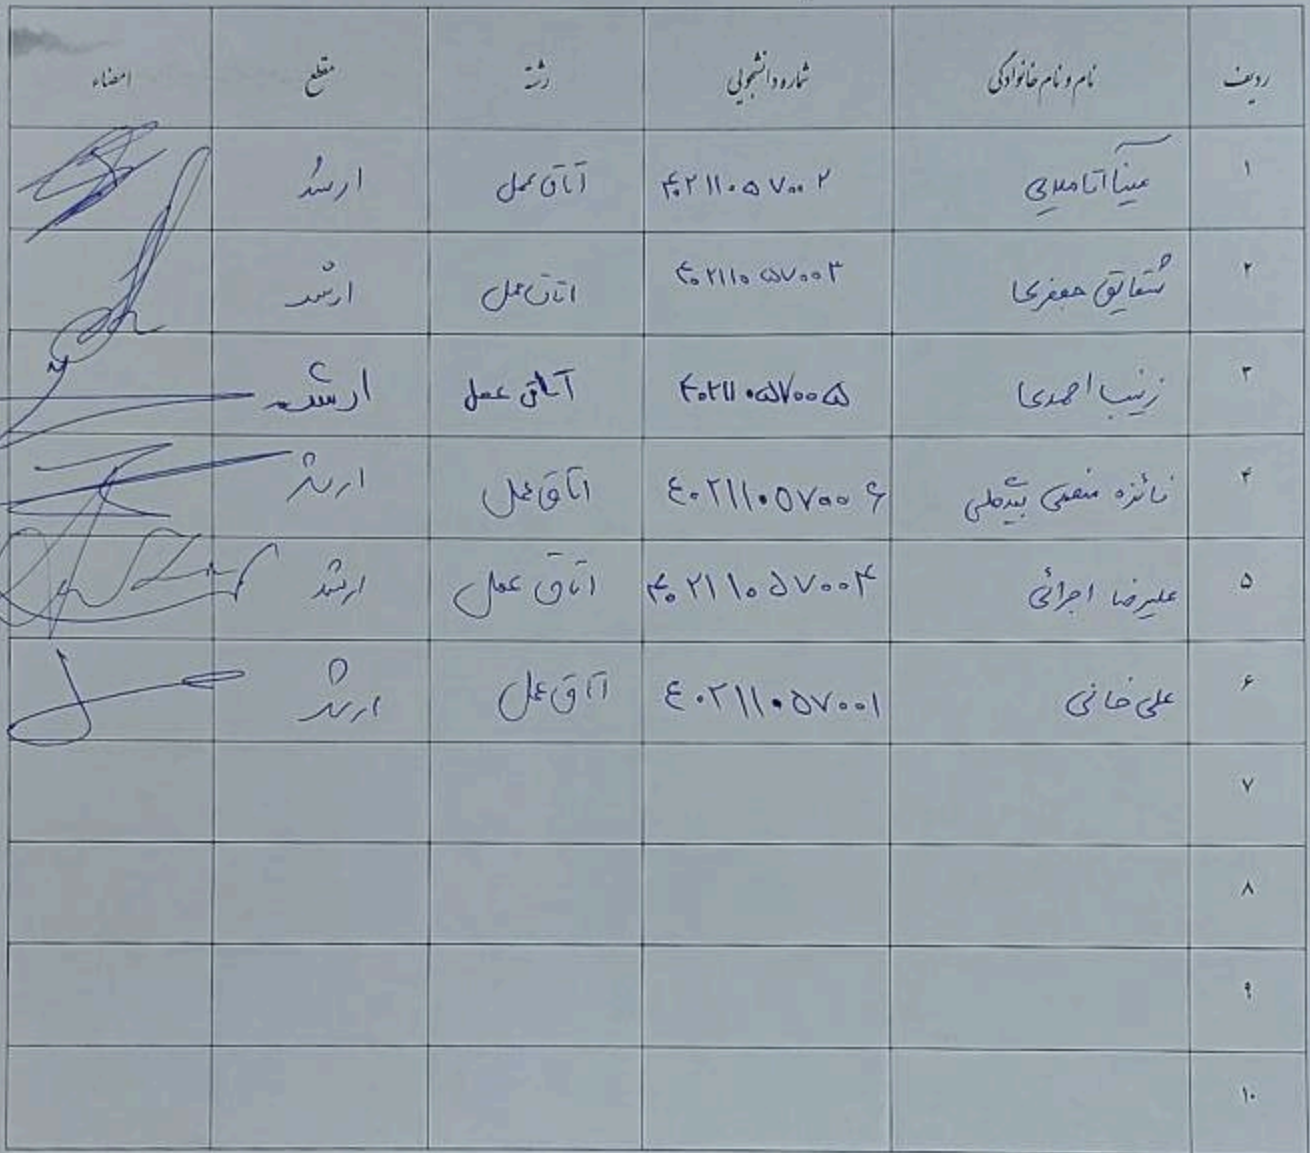 ردیف نام و نام خانوادگی شماره دانشجویی رشته مقطع امضاء
۱ مینا آتامیری ۴۰۲۱۱۰۵۷۰۰۲ اتاق عمل ارشد
۲ شقایق جعفری ۴۰۲۱۱۰۵۷۰۰۳ اتاق عمل ارشد
۳ زینب احمدی ۴۰۲۱۱۰۵۷۰۰۵ اتاق عمل ارشد
۴ فائزه ۴۰۲۱۱۰۵۷۰۰۶ اتاق عمل ارشد
۵ علیرضا اجرائی ۴۰۲۱۱۰۵۷۰۰۴ اتاق عمل ارشد
۶ علی خانی ۴۰۲۱۱۰۵۷۰۰۱ اتاق عمل ارشد
۷
۸
۹
۱۰